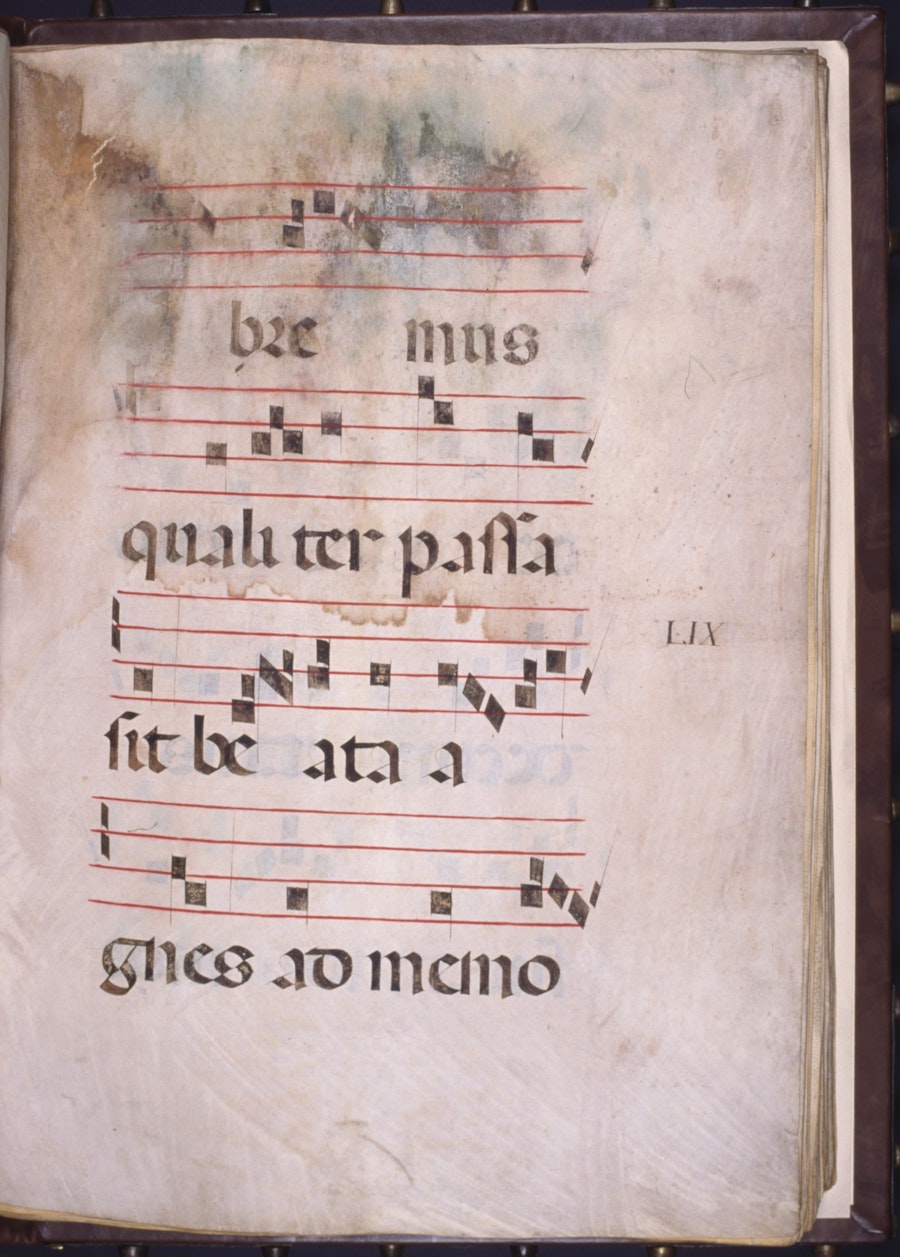 bre mus
quali ter passa
LIX
sit be ata a
gnes ad memo